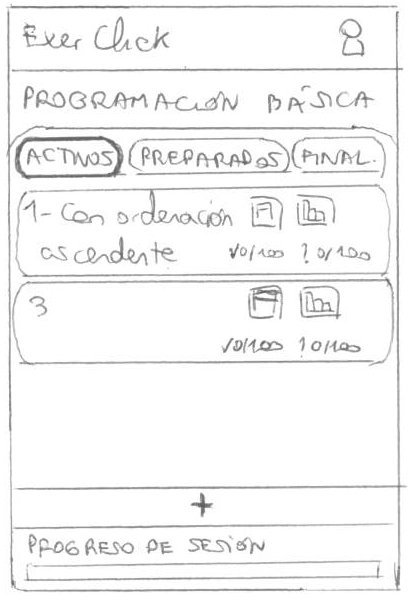 Exer Click
PROGRAMACIÓN BÁSICA
ACTIVOS PREPARADOS FINAL.
1- Con ordenación
ascendente
√0/100 ? 0/100
3
√0/100 ? 0/100
+
PROGRESO DE SESIÓN